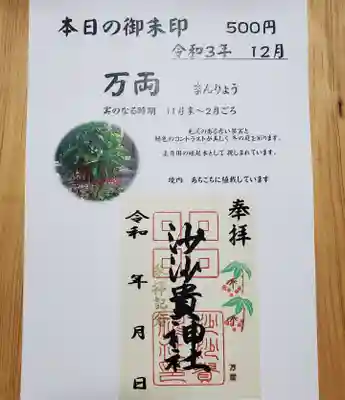 本日の御朱印　500円
令和3年　12月
万両　まんりょう
実のなる時期　11月末～2月ごろ
光沢のある赤い果実と
緑色のコントラストが美しく冬の庭を彩ります。
お正月の縁起木として親しまれています。
境内　あちこちに植栽しています
奉拝
沙沙貴神社
令和　年　月　日
万両